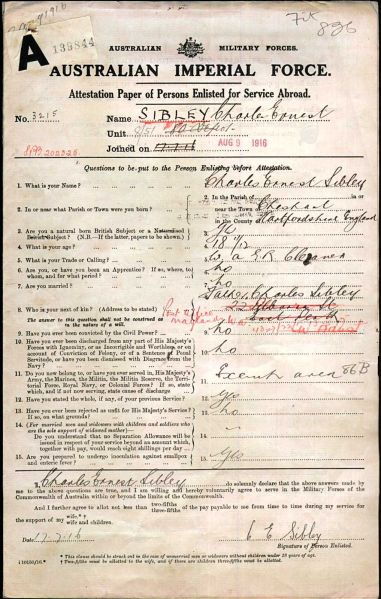 1916
A
139844
Fit
896
AUSTRALIAN MILITARY FORCES.
AUSTRALIAN IMPERIAL FORCE.
Attestation Paper of Persons Enlisted for Service Abroad.
No. 3215
Name SIBLEY Charles Ernest
Unit 8/51 Depot
Joined on AUG 9 1916
Questions to be put to the Person Enlisting before Attestation.
1. What is your Name? Charles Ernest Sibley
2. In or near what Parish or Town were you born? In the Parish of
near the Town of Chesham
in the County of Hertfordshire England
3. Are you a natural born British Subject or a Naturalised
British Subject? (N.B.—If the latter, papers to be shown.)
4. What is your age? 18
5. What is your Trade or Calling? W.A.G.R. Cleaner
6. Are you, or have you been an Apprentice? If so, where, to
whom, and for what period? no
7. Are you married? no
8. Who is your next of kin? (Address to be stated) Father Charles Sibley
The answer to this question shall not be construed as
in the nature of a will.
9. Have you ever been convicted by the Civil Power? no
10. Have you ever been discharged from any part of His Majesty's
Forces with Ignominy, or as Incorrigible and Worthless, or on
account of Conviction of Felony, or of a Sentence of Penal
Servitude, or have you been dismissed with Disgrace from the
Navy? no
11. Do you now belong to, or have you ever served in, His Majesty's
Army, the Marines, the Militia, the Militia Reserve, the Terri-
torial Force, Royal Navy, or Colonial Forces? If so, state
which, and if not now serving, state cause of discharge
Exempt area 86B
12. Have you stated the whole, if any, of your previous Service? Yes
13. Have you ever been rejected as unfit for His Majesty's Service?
If so, on what grounds? no
14. (For married men and widowers with children and soldiers who
are the sole support of widowed mother)—
Do you understand that no Separation Allowance will be
issued in respect of your service beyond an amount which,
together with pay, would reach eight shillings per day
15. Are you prepared to undergo inoculation against smallpox and
enteric fever? Yes
I, Charles Ernest Sibley do solemnly declare that the above answers made by
me to the above questions are true, and I am willing and hereby voluntarily agree to serve in the Military Forces of the
Commonwealth of Australia within or beyond the limits of the Commonwealth.
And I further agree to allot not less than two-fifths
three-fifths of the pay payable to me from time to time during my service for
the support of my wife.*†
wife and children.
Date 17.7.16
C E Sibley
Signature of Person Enlisted.
* This clause should be struck out in the case of unmarried men or widowers without children under 18 years of age.
† Two-fifths must be allotted to the wife, and if there are children three-fifths must be allotted.